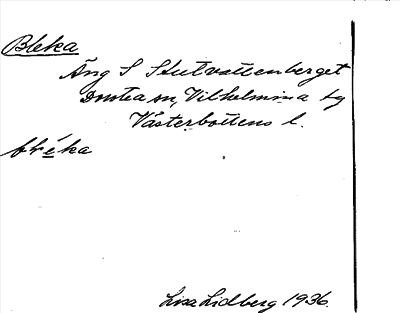 Bleka
Äng S Stutvattenberget
Dorotea sn, Vilhelmina tg
Västerbottens l.
bléka
Lisa Lidberg 1936.